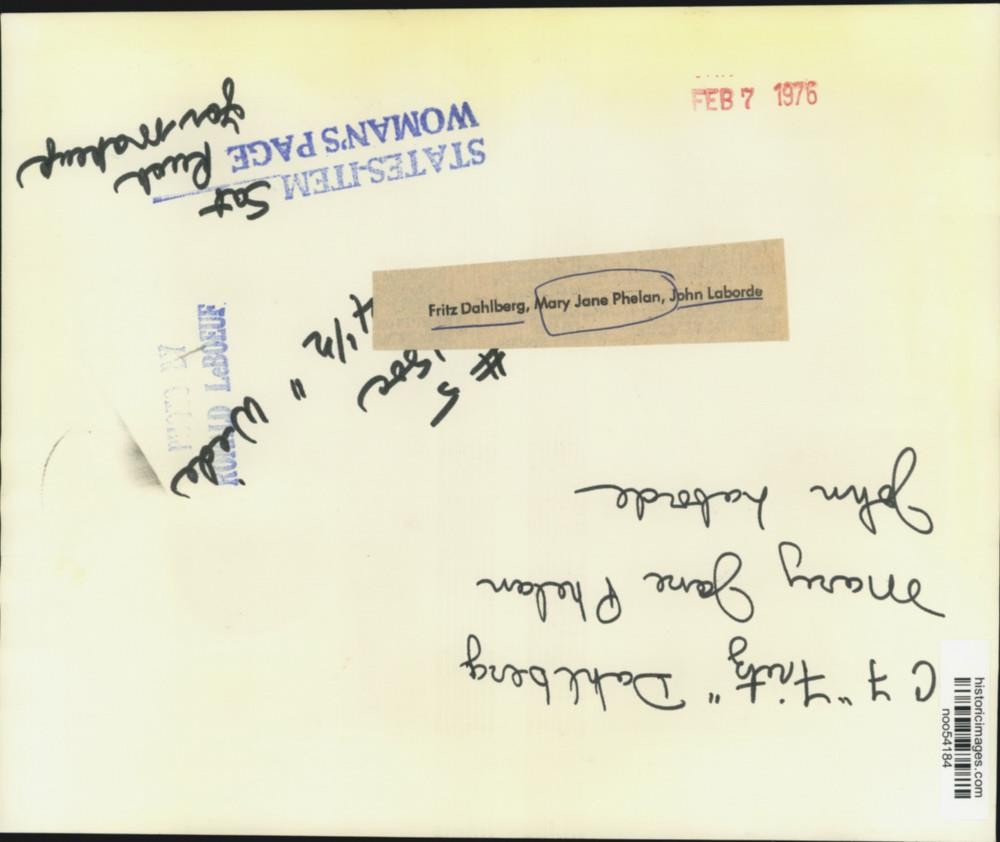 FEB 7 1976
STATES-ITEM
WOMAN'S PAGE
Sat Rush
for makeup
Fritz Dahlberg, Mary Jane Phelan, John Laborde
PHOTO BY
RONALD LeBOEUF
# 5
soc
"
C F "Fritz" Dahlberg
Mary Jane Phelan
John Laborde
historicimages.com
noo54184